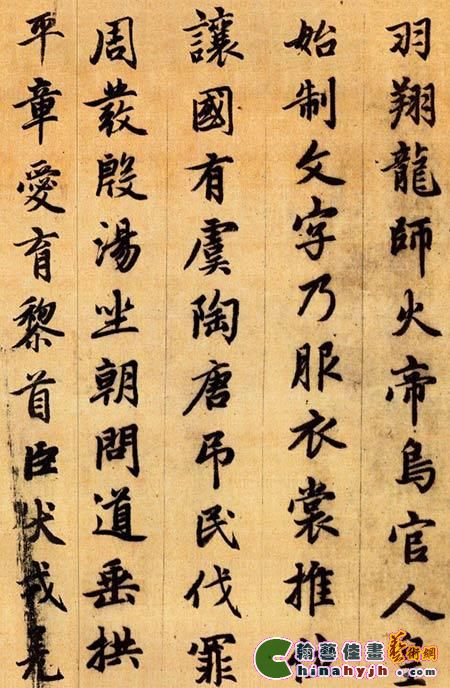 羽翔龍師火帝鳥官人皇
始制文字乃服衣裳推位
讓國有虞陶唐吊民伐罪
周發殷湯坐朝問道垂拱
平章愛育黎首臣伏戎羌
翰藝佳畫 藝術網
Chinahyjh.com